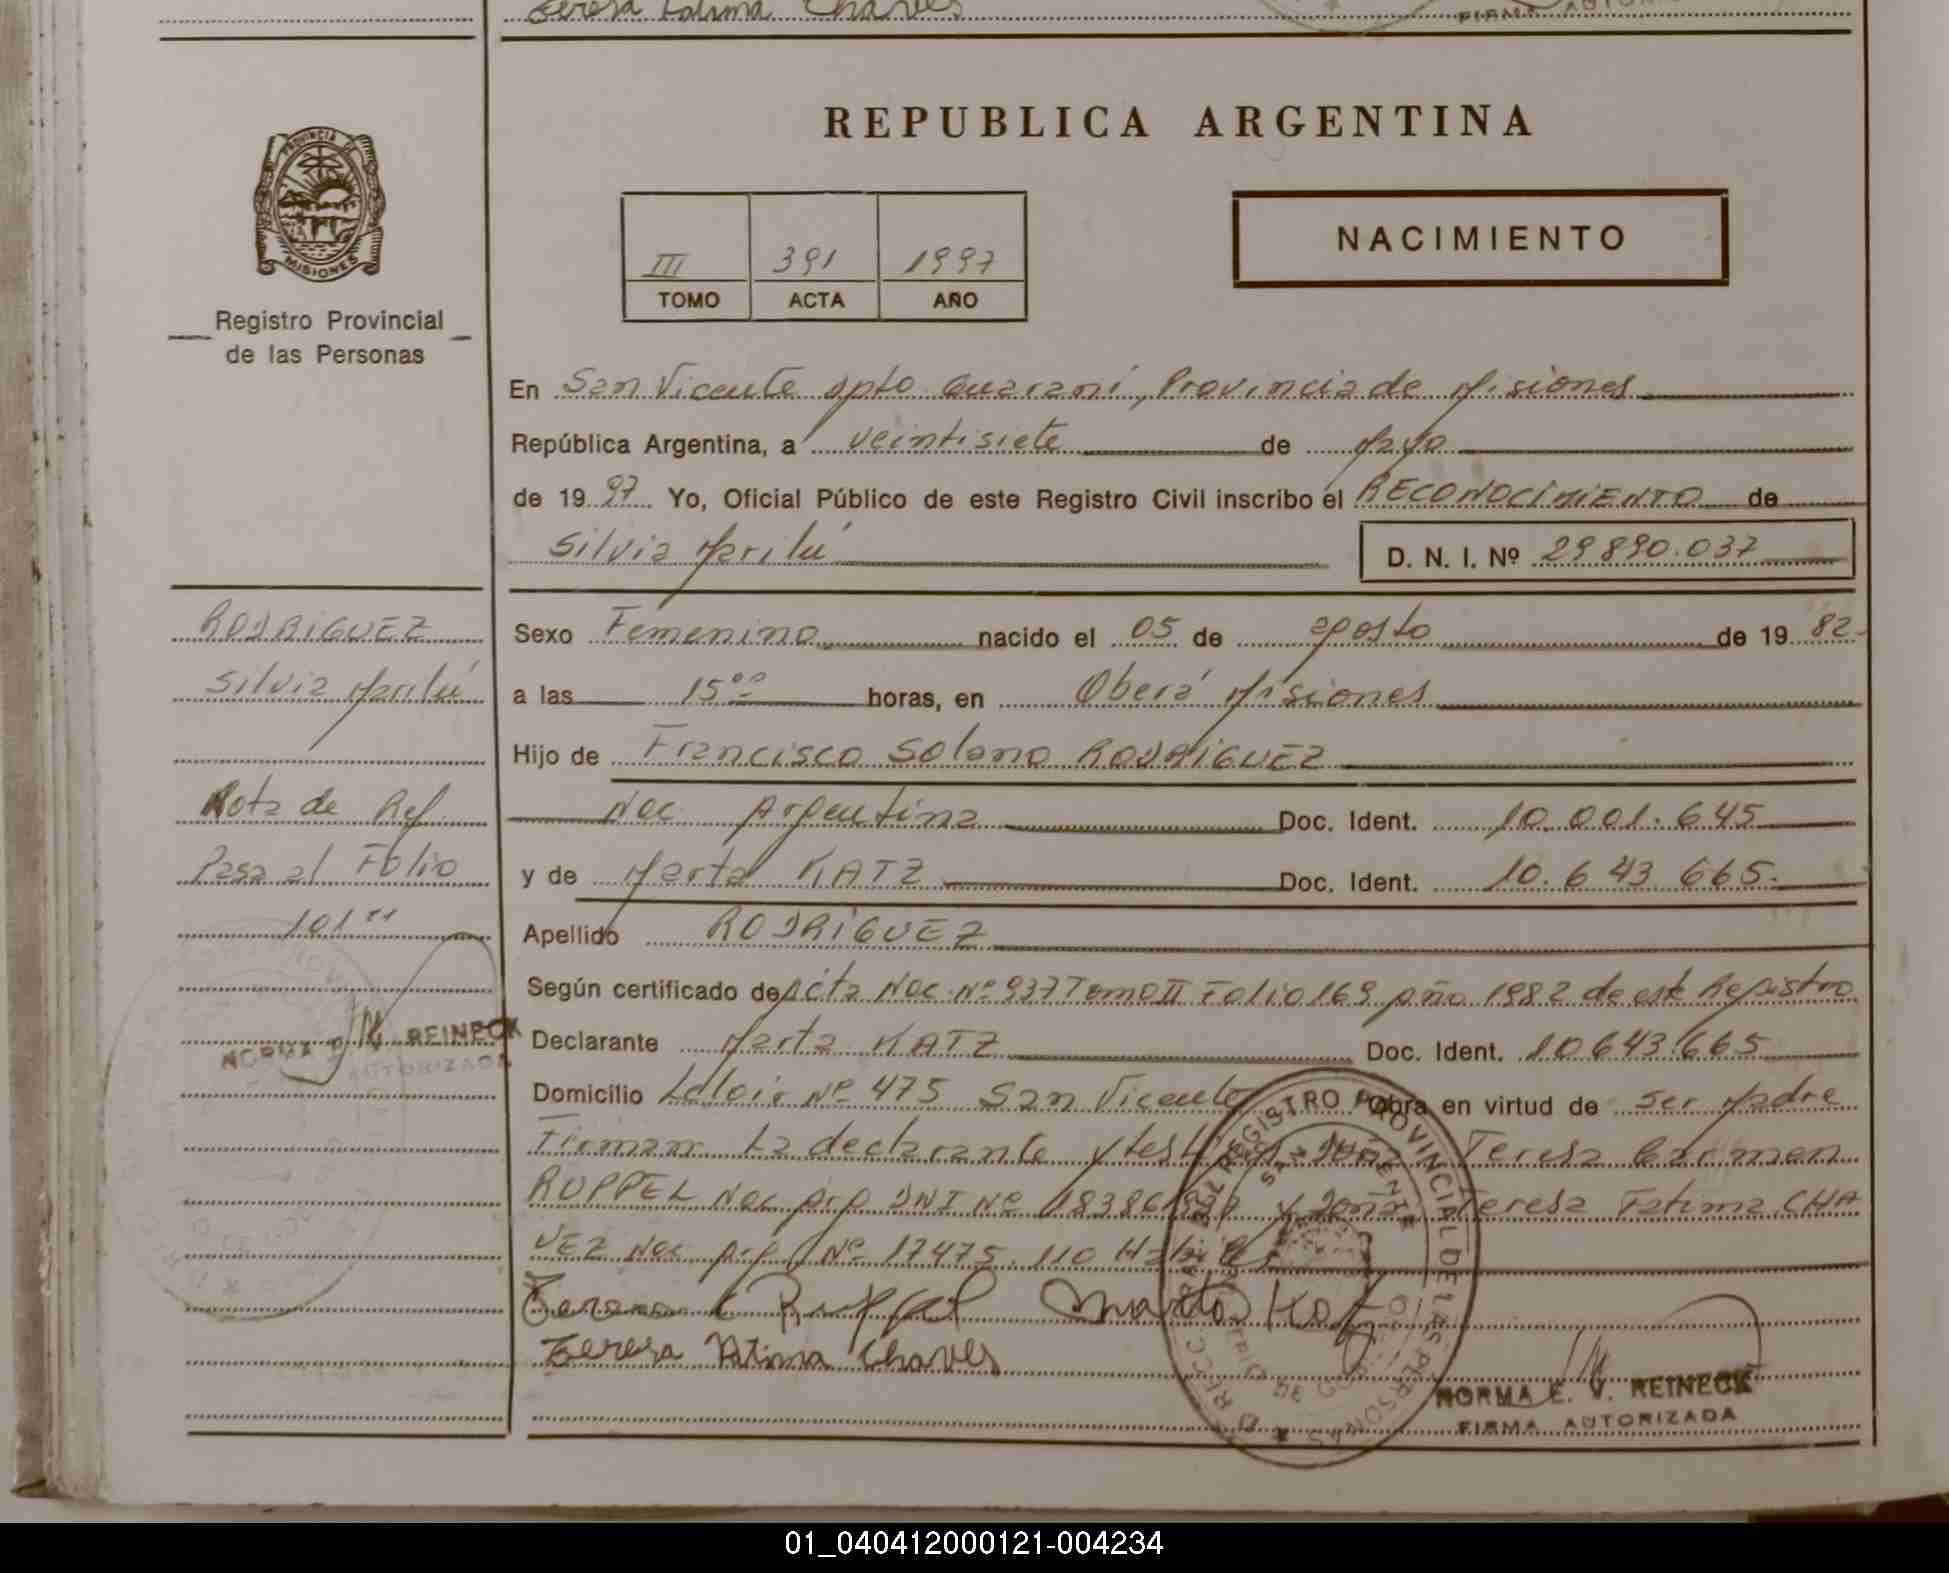 Teresa Fatima Chaves
FIRMA AUTORI
REPUBLICA ARGENTINA
PROVINCIA DE
MISIONES
Registro Provincial
de las Personas
III 391 1997
TOMO ACTA AÑO
NACIMIENTO
En San Vicente Dpto Guaraní, Provincia de Misiones
República Argentina, a veintisiete de Mayo
de 1997 Yo, Oficial Público de este Registro Civil inscribo el RECONOCIMIENTO de
Silvia Marilú
D. N. I. Nº 29890.037
RODRIGUEZ
Silvia Marilú
Nota de Ref
Pasa al Folio
101
NORMA E. V. REINECK
AUTORIZADA
Sexo Femenino nacido el 05 de agosto de 1982
a las 15ºº horas, en Oberá Misiones
Hijo de Francisco Solano RODRIGUEZ
Nac Argentina Doc. Ident. 10.001.645
y de Marta KATZ Doc. Ident. 10.643.665.
Apellido RODRIGUEZ
Según certificado de Acta Nac Nº 937 Tomo II Folio 169 Año 1982 de este Registro
Declarante Marta KATZ Doc. Ident. 10643.665
Domicilio Leloir Nº 475 San Vicente Obra en virtud de ser Madre
Firman La declarante y testigos Doña Teresa Carmen
RUPPEL Nac Arg DNI Nº y Doña Teresa Fatima CHA
VEZ Nac Arg Nº 17475.110 Habil
Teresa C Ruppel Marta Katz
Teresa Fatima Chaves
REGISTRO PROVINCIAL DE LAS PERSONAS
SAN VICENTE
NORMA E. V. REINECK
FIRMA AUTORIZADA
01_040412000121-004234